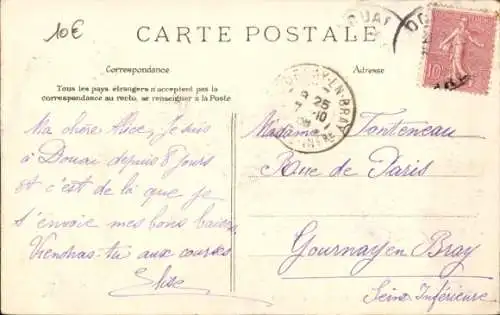 10€
CARTE POSTALE
Correspondance
Adresse
Tous les pays étrangers n'acceptent pas la
correspondance au recto, se renseigner à la Poste
Ma chère Alice, Je suis
à Douai depuis 8 jours
et c'est de là que je
t'envoie mes bons baisers
Viendras-tu aux courses
Elise
Madame Fanteneau
Rue de Paris
Gournay en Bray
Seine Inférieure
10